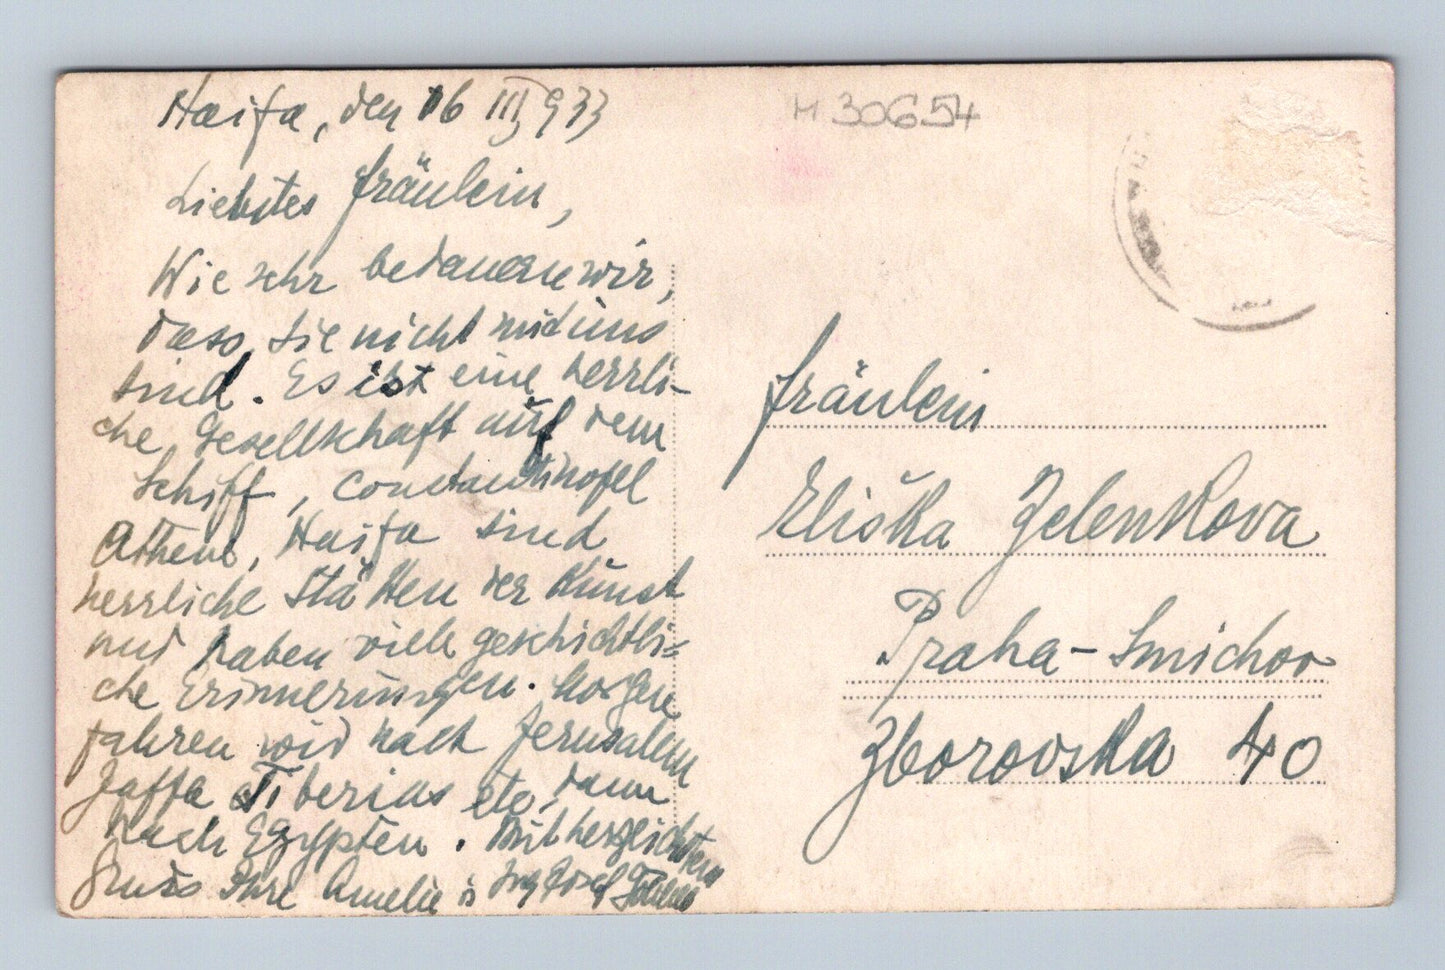 Haifa, den 16 III 933
Liebstes Fräulein,
Wie sehr bedauern wir,
dass Sie nicht mit uns
sind. Es ist eine herrli-
che Gesellschaft auf dem
Schiff, Constantinopel
Athen, Haifa sind
herrliche Stätten der Kunst
und haben viele geschichtli=
che Erinnerungen. Morgen
fahren wir nach Jerusalem
Jaffa Tiberias etc, dann
nach Egypten. Mit herzlichstem
Gruss Ihre Amelie u Ing Josef
M 30654
Fräulein
Eliška Zelenkova
Praha-Smichov
Zborovska 40